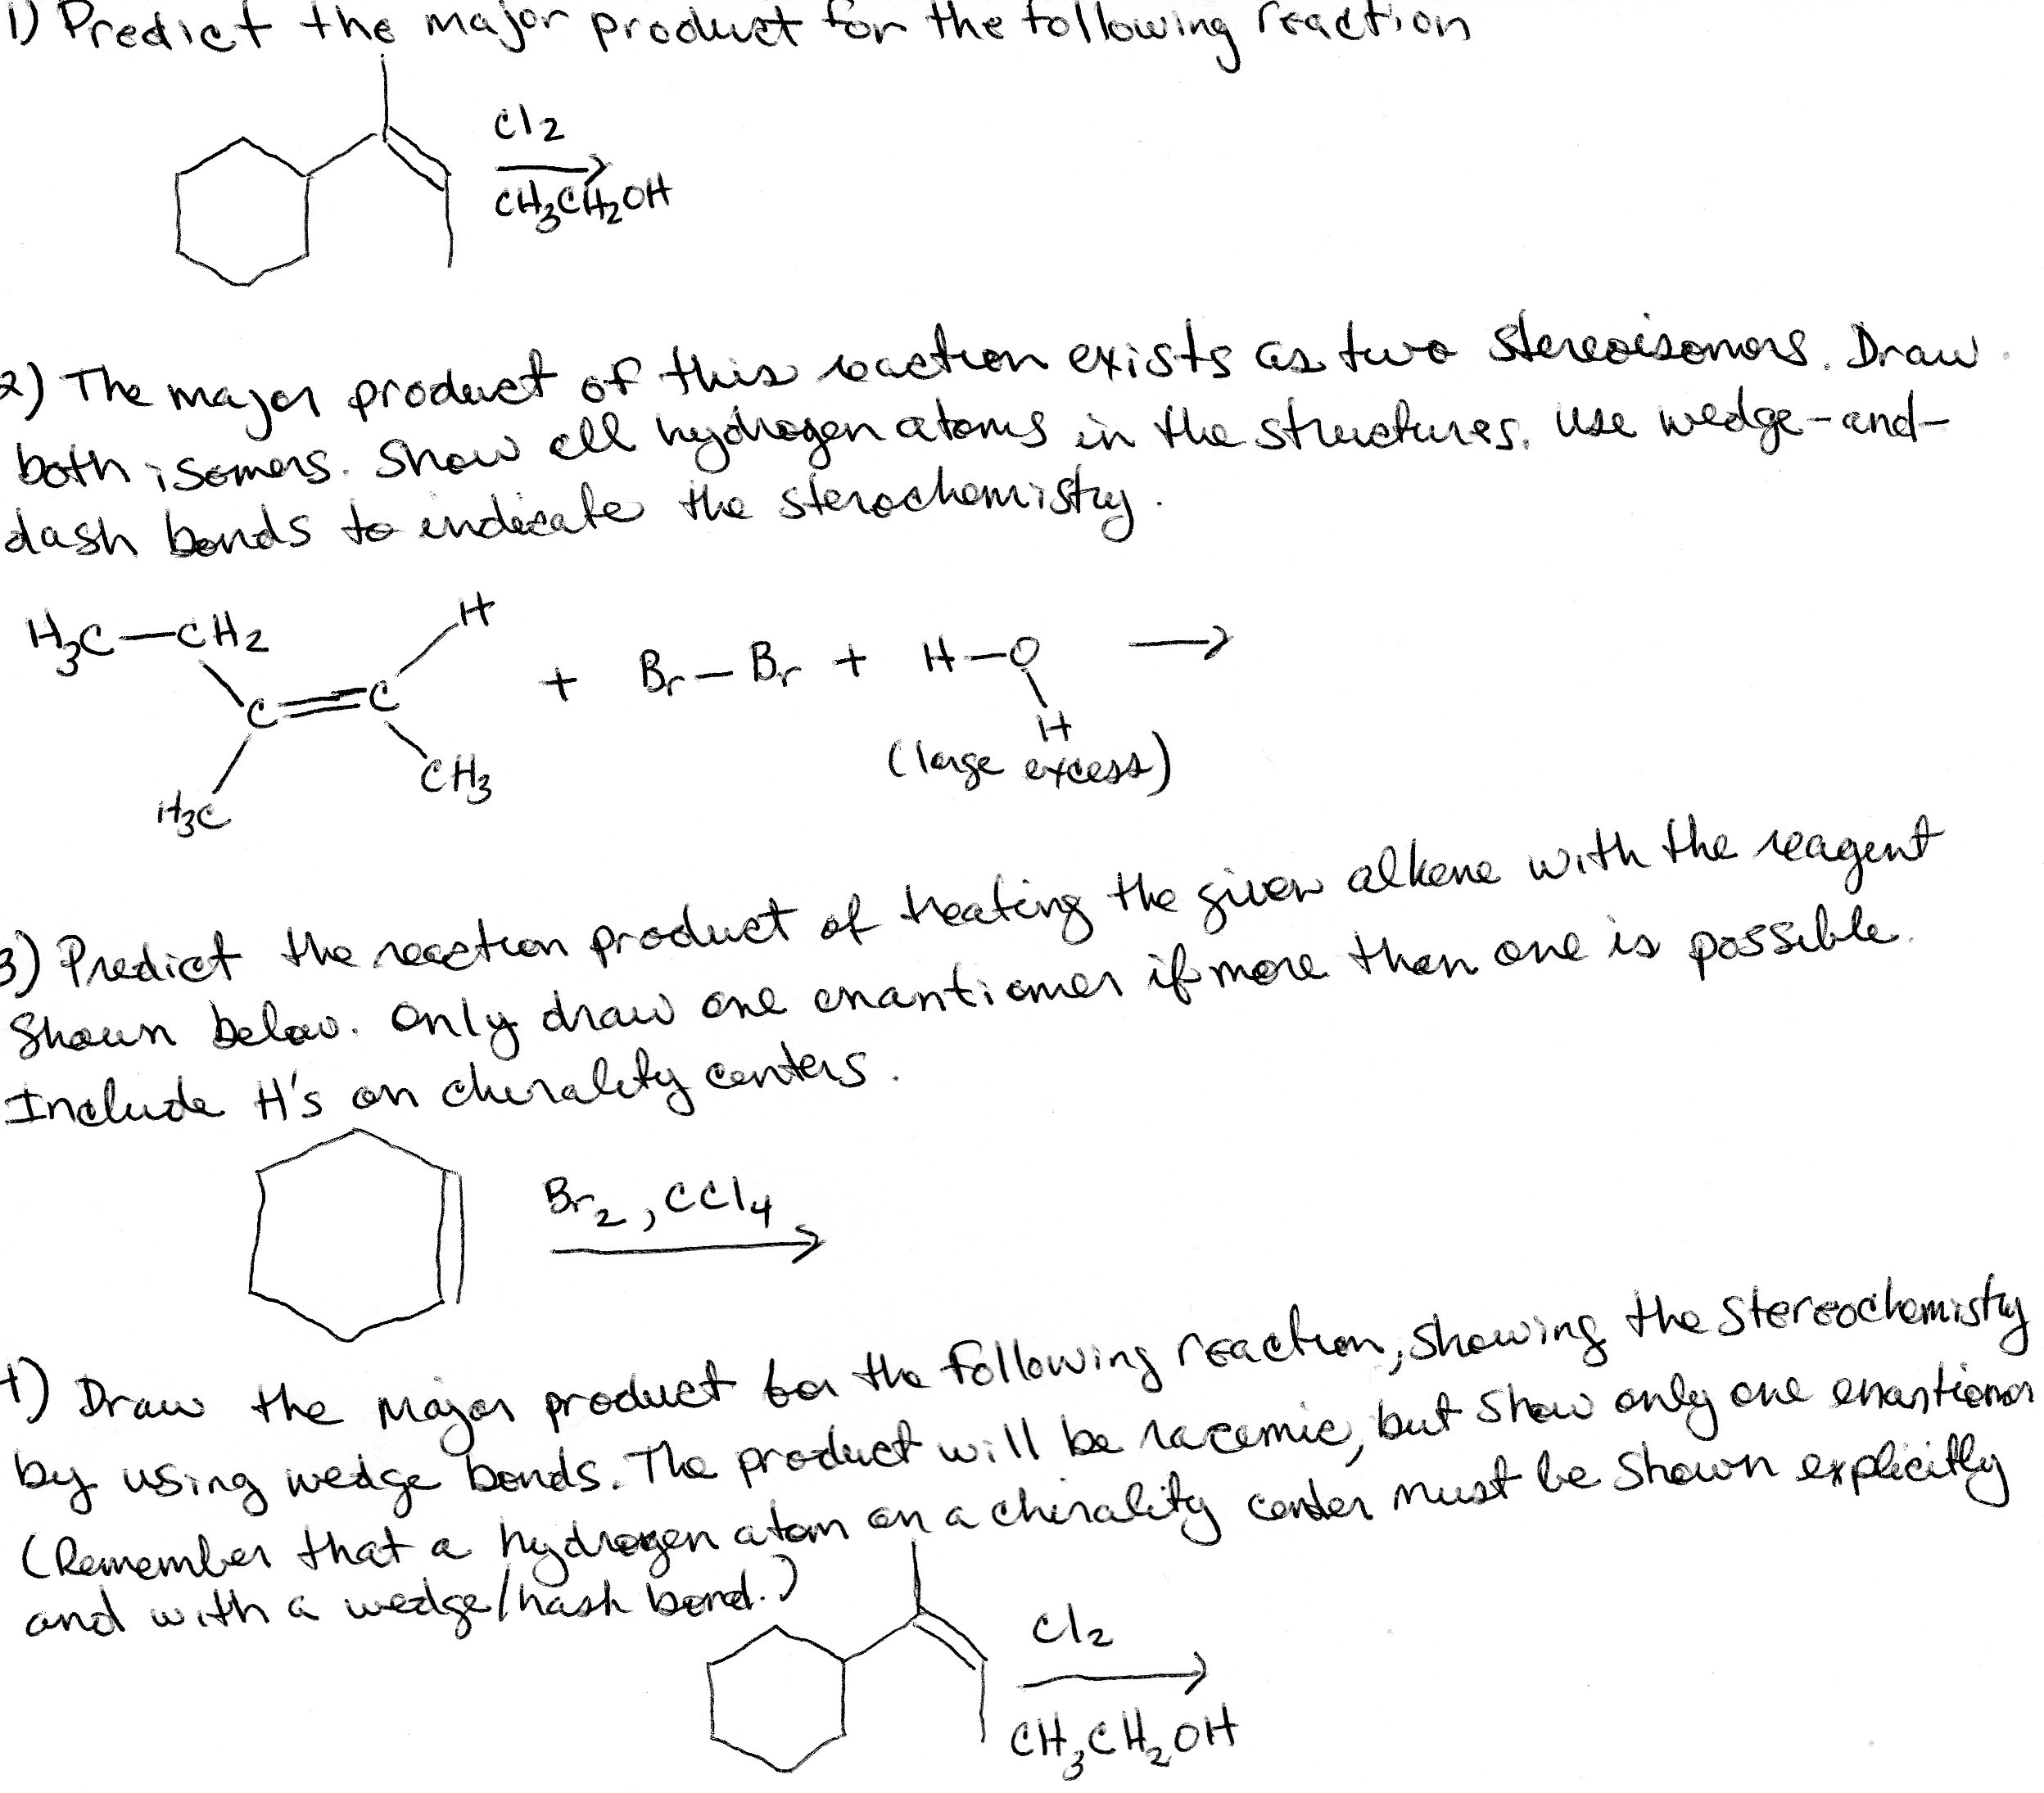 1) Predict the major product for the following reaction
Cl2
CH3CH2OH
2) The major product of this reaction exists as two stereoisomers. Draw
both isomers. Show all hydrogen atoms in the structures. Use wedge-and-
dash bonds to indicate the sterochemistry.
H3C-CH2 H
C=C + Br-Br + H-O
H
H3C CH3 (large excess)
3) Predict the reaction product of treating the given alkene with the reagent
Shown below. Only draw one enantiomer if more than one is possible.
Include H's on chirality centers.
Br2, CCl4
4) Draw the major product for the following reaction, showing the stereochemisty
by using wedge bonds. The product will be racemic, but show only one enantiomer
(Remember that a hydrogen atom on a chirality center must be shown explicitly
and with a wedge/hash bond.)
Cl2
CH3CH2OH